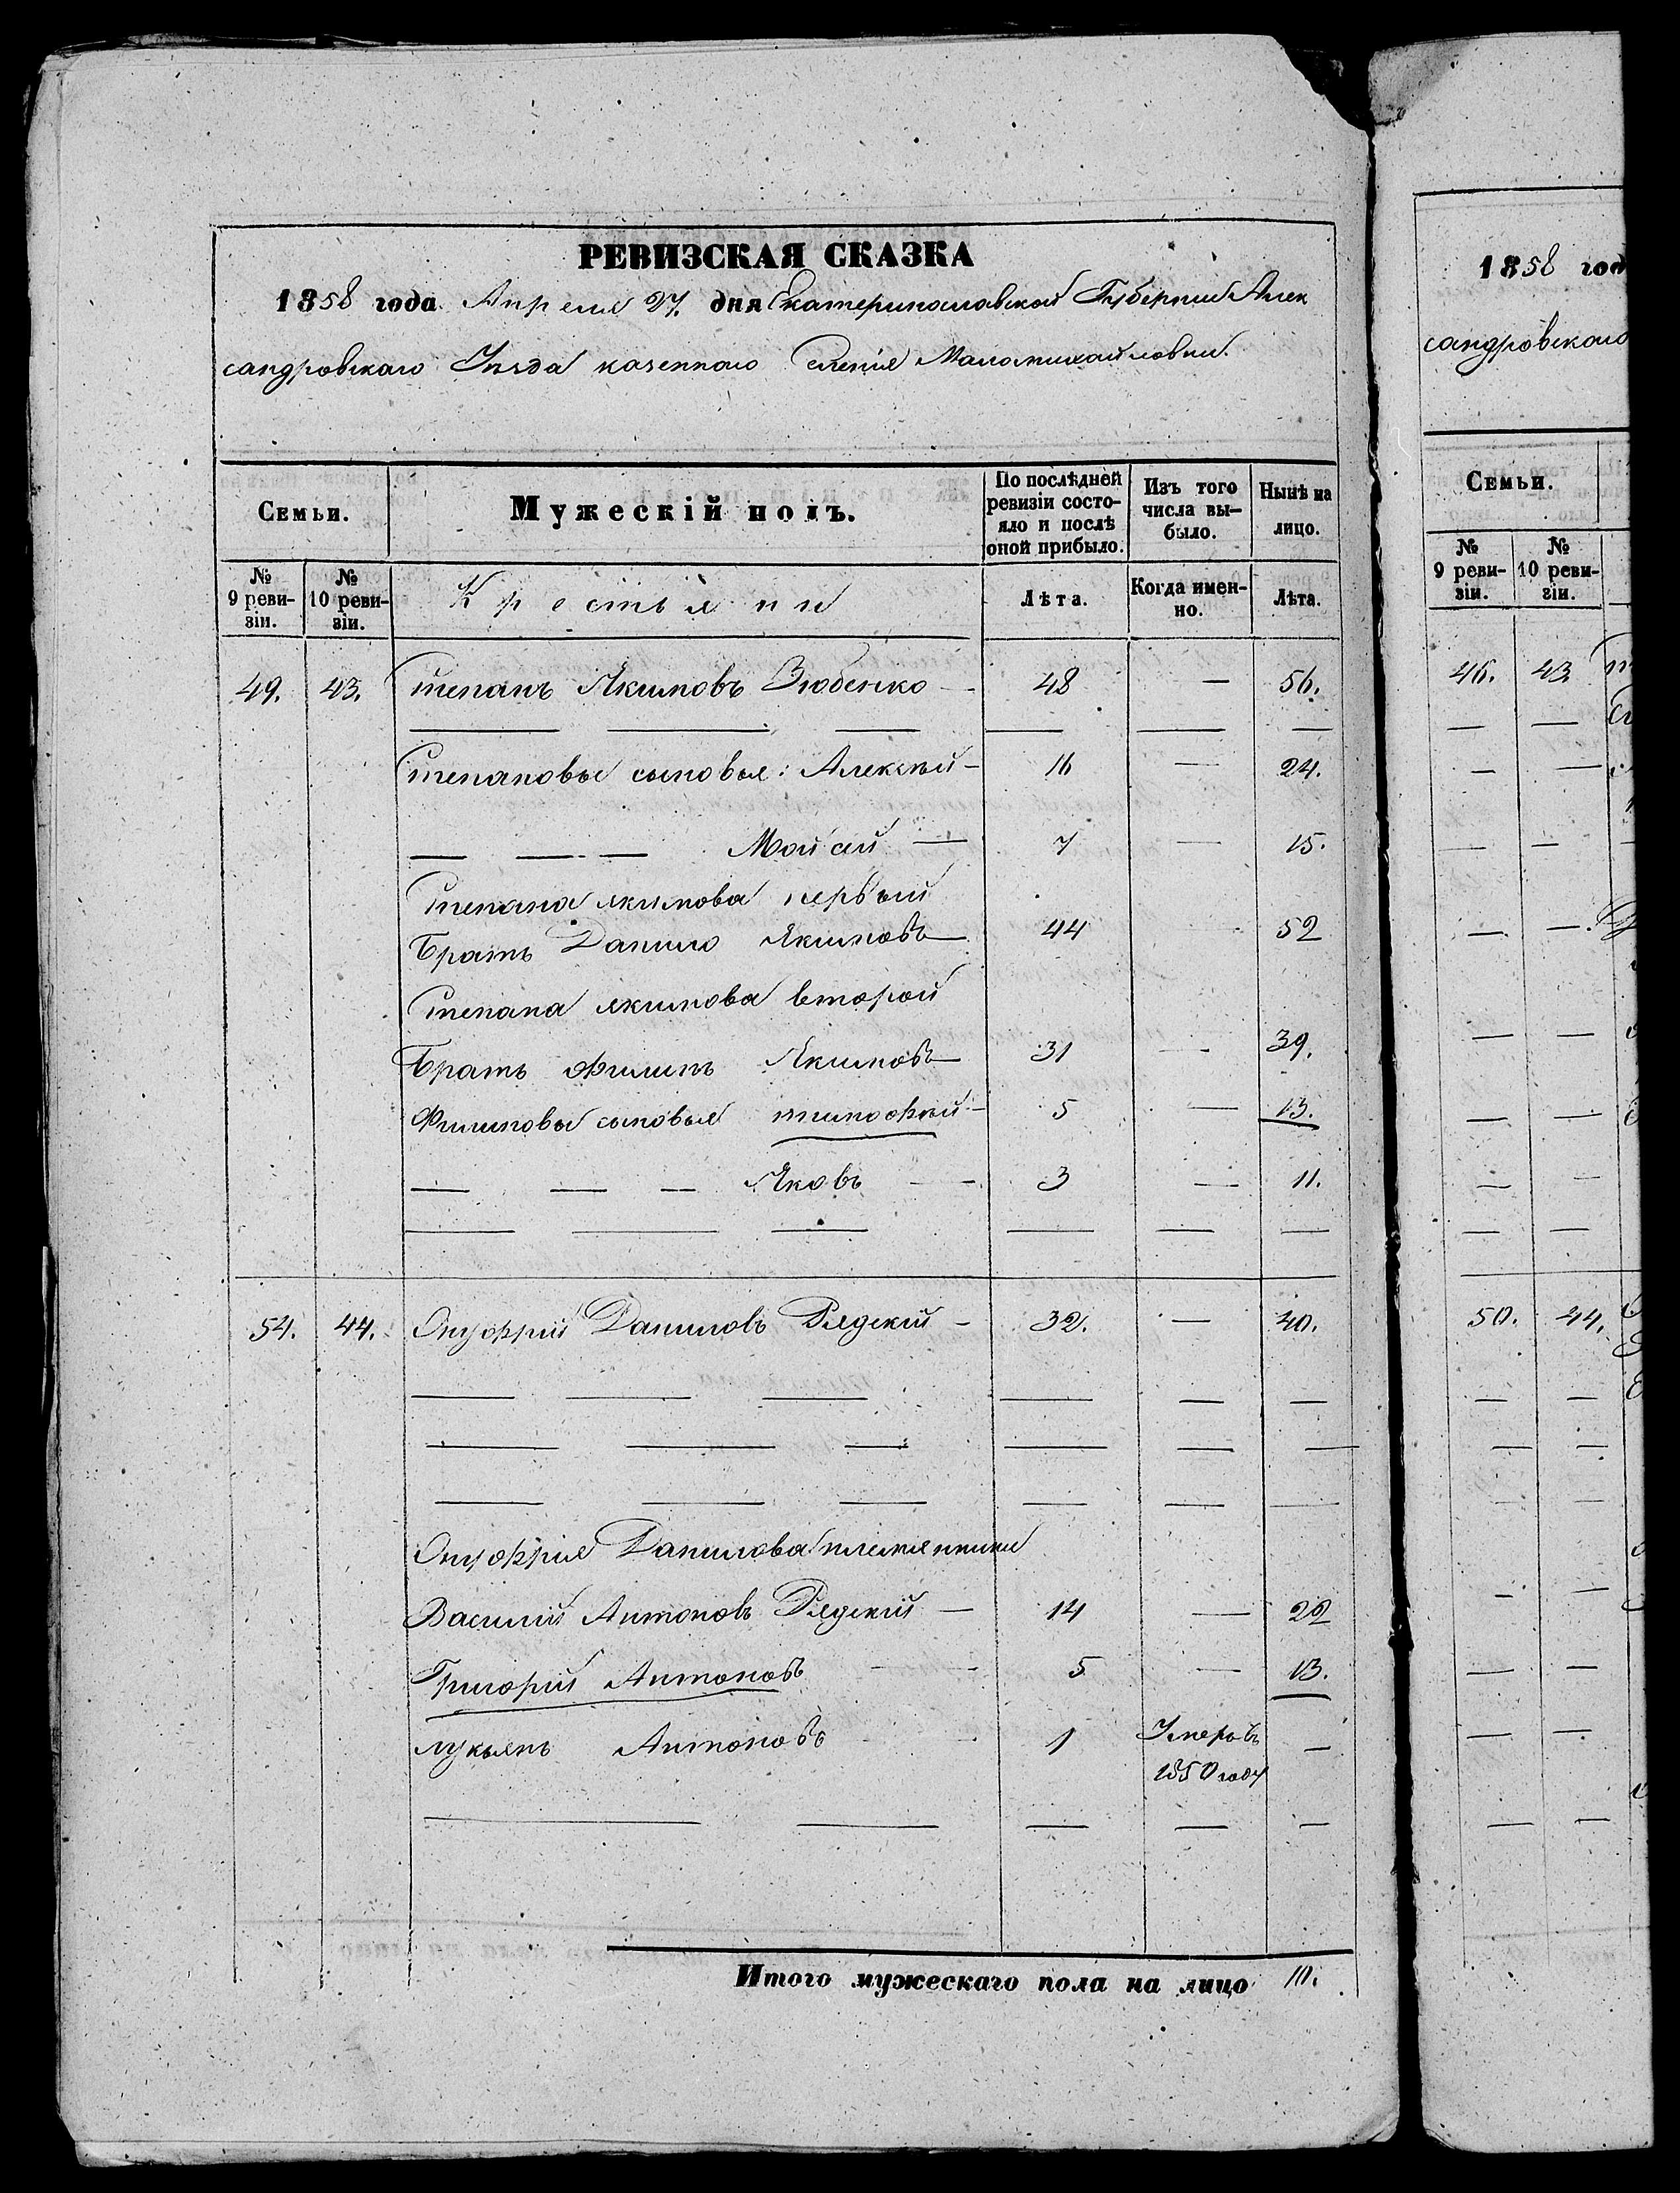 РЕВИЗСКАЯ СКАЗКА
1858 года Апреля 27. дня Екатеринославской Губернии Алек
сандровскаго Уѣзда казеннаго Селенія Маломихайловки.
Семьи.
Мужескій полъ.
По послѣдней ревизіи состояло и послѣ оной прибыло.
Изъ того числа вы-было.
Нынѣ на лицо.
№ 9 реви-зіи.
№ 10 реви-зіи.
Крестьяни
Лѣта.
Когда имен-но.
Лѣта.
49. 43. Степанъ Якимовъ Зюбенко — 48 — 56.
— — — — — —
Степановы сыновья: Алексѣй — 16 — 24.
— — — Мойсей — 7 — 15.
Степана Якимова первый
Братъ Данило Якимовъ — 44 — 52
Степана Якимова второй
Братъ Филипъ Якимовъ — 31 — 39.
Филиповы сыновья тимофѣй — 5 — 13.
— — — Яковъ — 3 — 11.
— — — — — —
54. 44. Онуфрій Даниловъ Рядскій — 32. — 40.
— — — — — —
— — — — — —
— — — — — —
Онуфрія Данилова племянники
Василій Антоновъ Рядскій — 14 — 22
Григорій Антоновъ — — 5 — 13.
лукьянъ Антоновъ — — 1 Умеръ въ 1850 году —
— — — — —
Итого мужескаго пола на лицо 10.
1858 год
сандровскаго
Семьи.
№ 9 реви-зіи.
№ 10 реви-зіи.
46. 43.
50. 44.